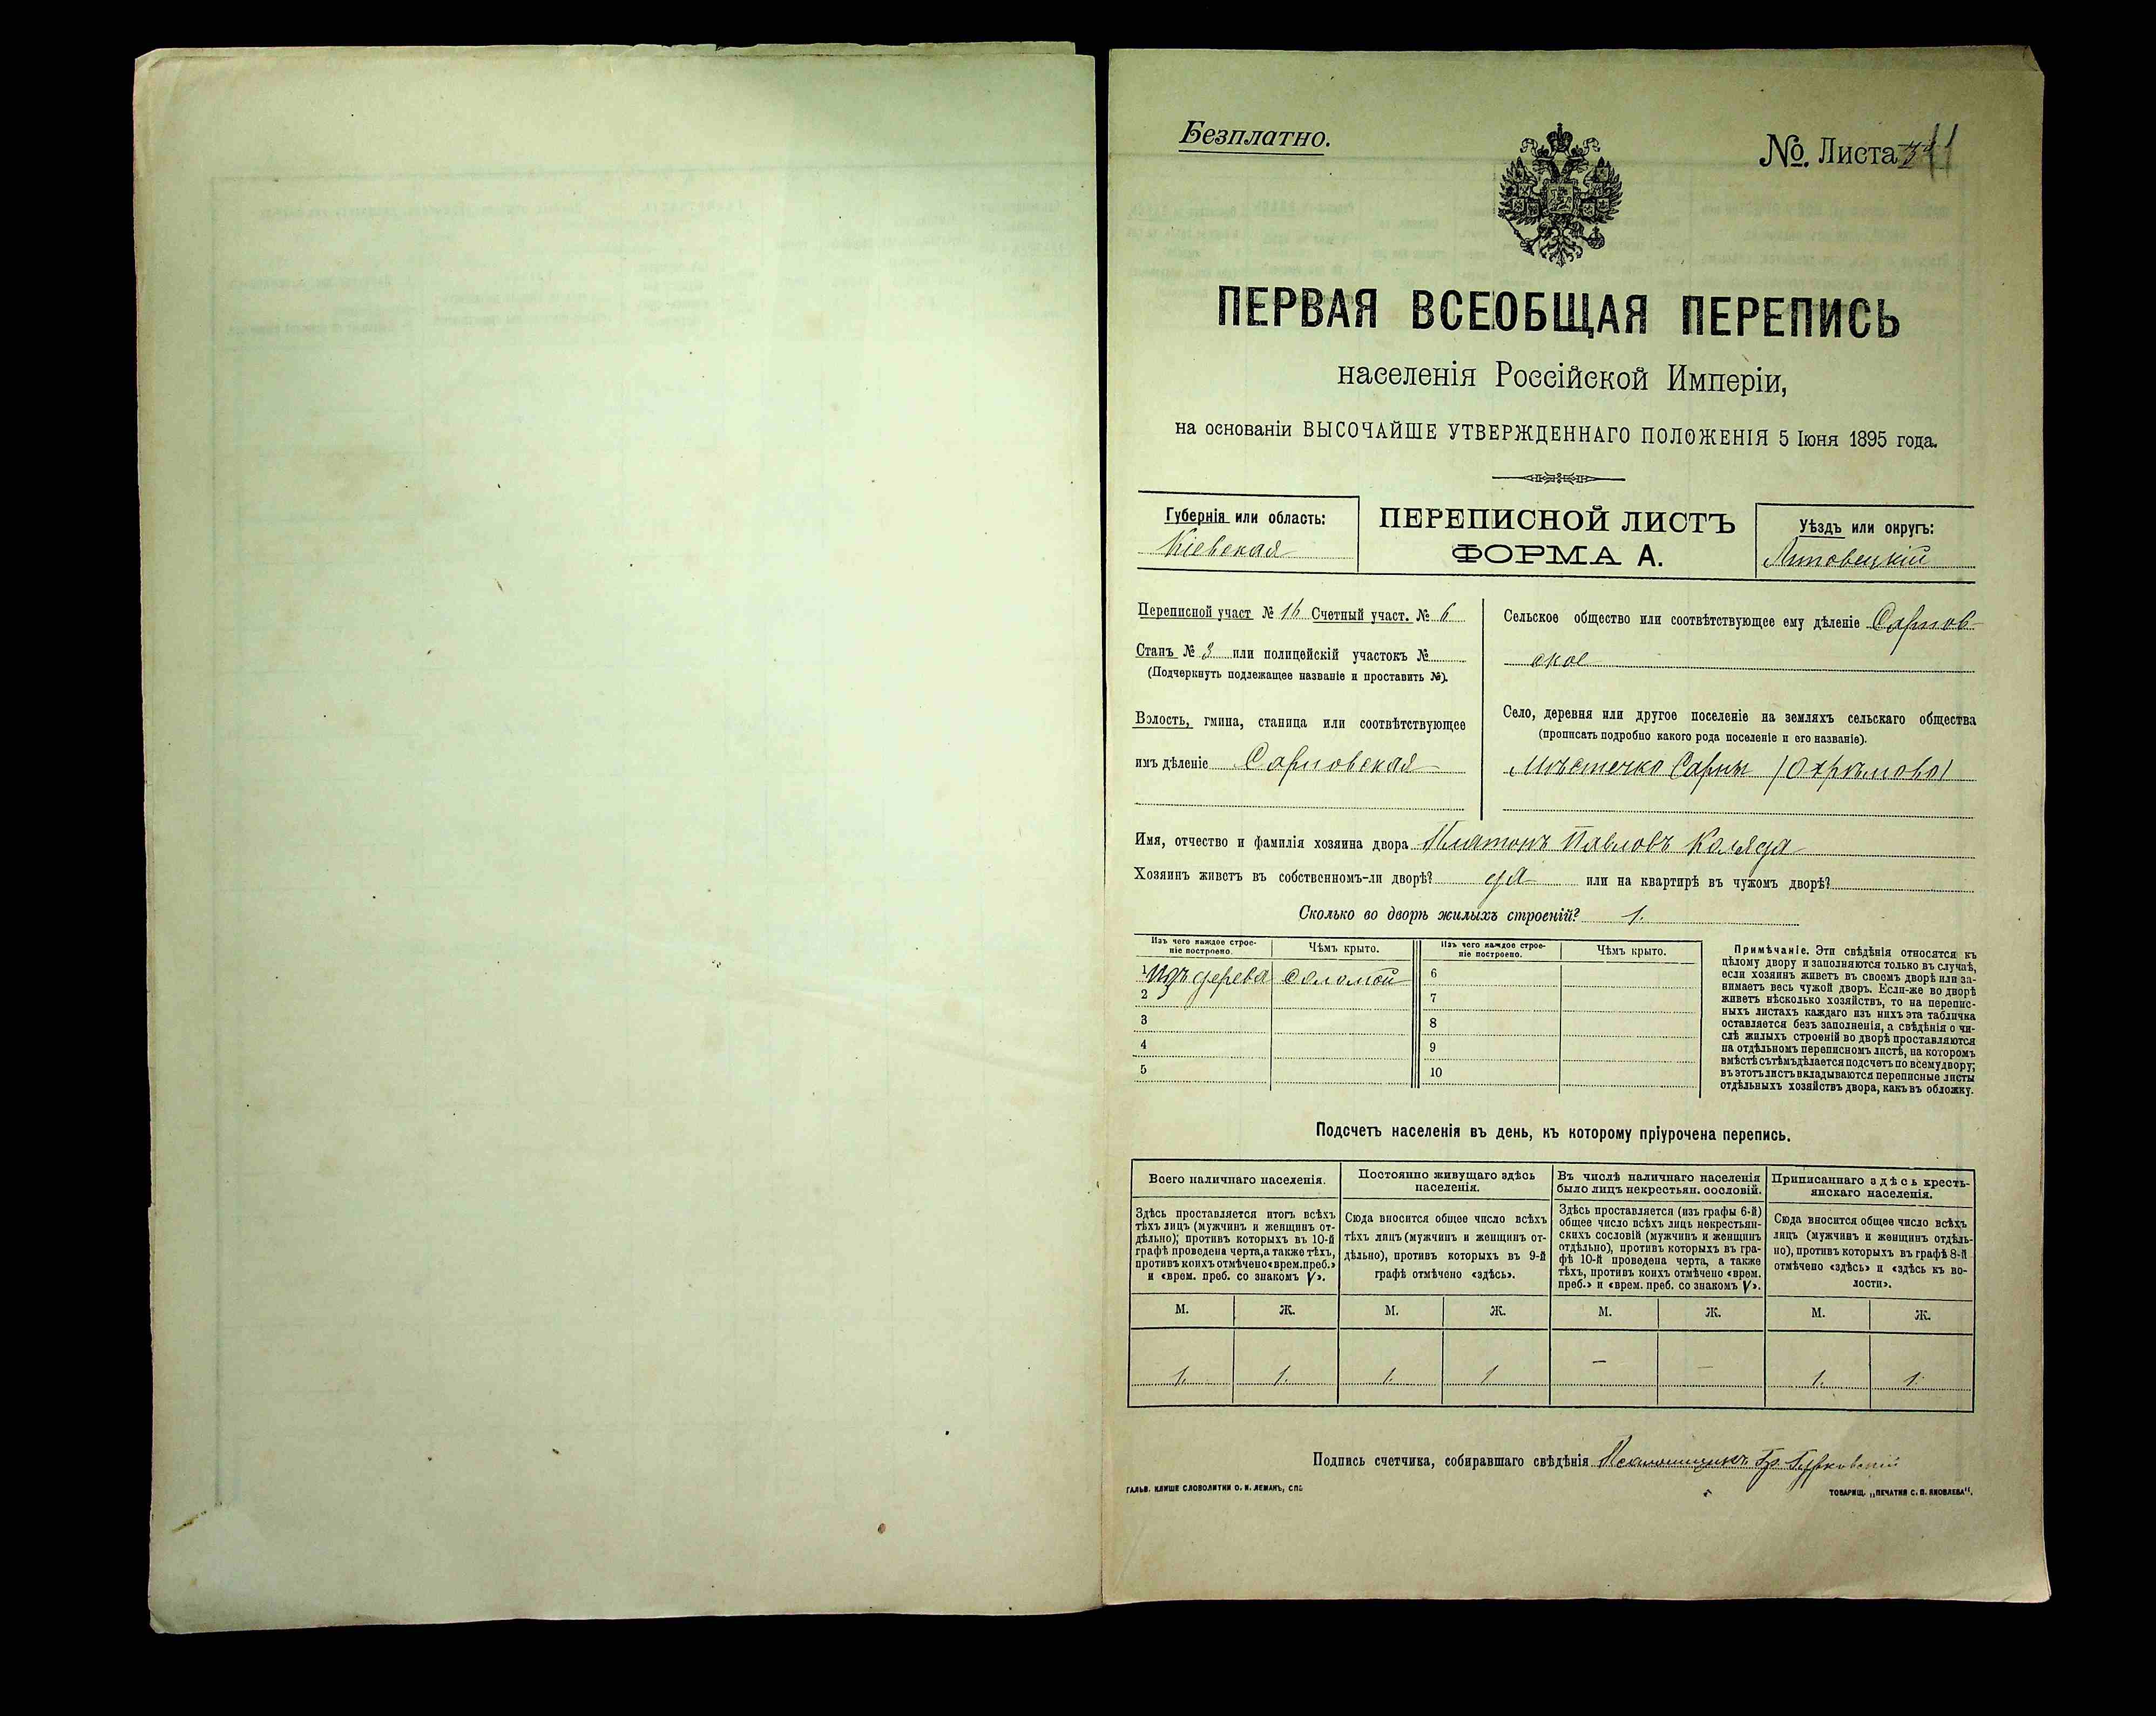 Безплатно.
No. Листа
ПЕРВАЯ ВСЕОБЩАЯ ПЕРЕПИСЬ
населенія Россійской Имперіи,
на основаніи ВЫСОЧАЙШЕ УТВЕРЖДЕННАГО ПОЛОЖЕНІЯ 5 Іюня 1895 года.
Губернія или область:
Кіевская
ПЕРЕПИСНОЙ ЛИСТЪ
ФОРМА А.
Уѣздъ или округъ:
Липовецкій
Переписной участ № 16 Счетный участ. № 6
Станъ № 3 или полицейскій участокъ №
(Подчеркнуть подлежащее названіе и проставить №).
Волость, гмина, станица или соотвѣтствующее
имъ дѣленіе Сарновская
Сельское общество или соотвѣтствующее ему дѣленіе Сарнов-
ское
Село, деревня или другое поселеніе на земляхъ сельскаго общества
(прописать подробно какого рода поселеніе и его названіе).
Мѣстечко Сарны (Охрѣмово)
Имя, отчество и фамилія хозяина двора Платонъ Павловъ Коляда
Хозяинъ живетъ въ собственномъ-ли дворѣ? да или на квартирѣ въ чужомъ дворѣ?
Сколько во дворѣ жилыхъ строеній? 1.
Изъ чего каждое строе-
ніе построено.
Чѣмъ крыто.
Изъ чего каждое строе-
ніе построено.
Чѣмъ крыто.
1 Изъ дерева Соломой
2
3
4
5
6
7
8
9
10
Примѣчаніе. Эти свѣдѣнія относятся къ
цѣлому двору и заполняются только въ случаѣ,
если хозяинъ живетъ въ своемъ дворѣ или за-
нимаетъ весь чужой дворъ. Если-же во дворѣ
живетъ нѣсколько хозяйствъ, то на перепис-
ныхъ листахъ каждаго изъ нихъ эта табличка
оставляется безъ заполненія, а свѣдѣнія о чи-
слѣ жилыхъ строеній во дворѣ проставляются
на отдѣльномъ переписномъ листѣ, на которомъ
вмѣстѣ съ тѣмъ дѣлается подсчетъ по всему двору;
въ этотъ листъ вкладываются переписные листы
отдѣльныхъ хозяйствъ двора, какъ въ обложку.
Подсчетъ населенія въ день, къ которому пріурочена перепись.
Всего наличнаго населенія.
Здѣсь проставляется итогъ всѣхъ
тѣхъ лицъ (мужчинъ и женщинъ от-
дѣльно); противъ которыхъ въ 10-й
графѣ проведена черта, а также тѣхъ,
противъ коихъ отмѣчено «врем. преб.»
и «врем. преб. со знакомъ V».
Постоянно живущаго здѣсь
населенія.
Сюда вносится общее число всѣхъ
тѣхъ лицъ (мужчинъ и женщинъ от-
дѣльно), противъ которыхъ въ 9-й
графѣ отмѣчено «здѣсь».
Въ числѣ наличнаго населенія
было лицъ некрестьян. сословій.
Здѣсь проставляется (изъ графы 6-й)
общее число всѣхъ лицъ некрестьян-
скихъ сословій (мужчинъ и женщинъ
отдѣльно), противъ которыхъ въ гра-
фѣ 10-й проведена черта, а также
тѣхъ, противъ коихъ отмѣчено «врем.
преб.» и «врем. преб. со знакомъ V».
Приписаннаго здѣсь кресть-
янскаго населенія.
Сюда вносится общее число всѣхъ
лицъ (мужчинъ и женщинъ отдѣль-
но), противъ которыхъ въ графѣ 8-й
отмѣчено «здѣсь» и «здѣсь къ во-
лости».
М. Ж. М. Ж. М. Ж. М. Ж.
1. 1. 1. 1 — — 1. 1.
Подпись счетчика, собиравшаго свѣдѣнія Псаломщикъ Гр.
ГАЛЬВ. КЛИШЕ СЛОВОЛИТНИ О. И. ЛЕМАНЪ, СПБ
ТОВАРИЩ. „ПЕЧАТНЯ С. П. ЯКОВЛЕВА“.